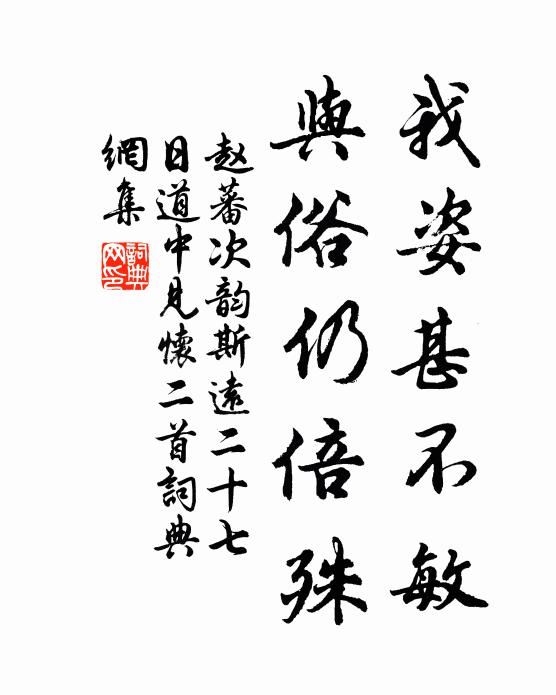 我姿甚不敏
與俗仍倍殊
赵蕃次韵斯遠二十七
日道中見懷二首詞典
網集
詞典網印